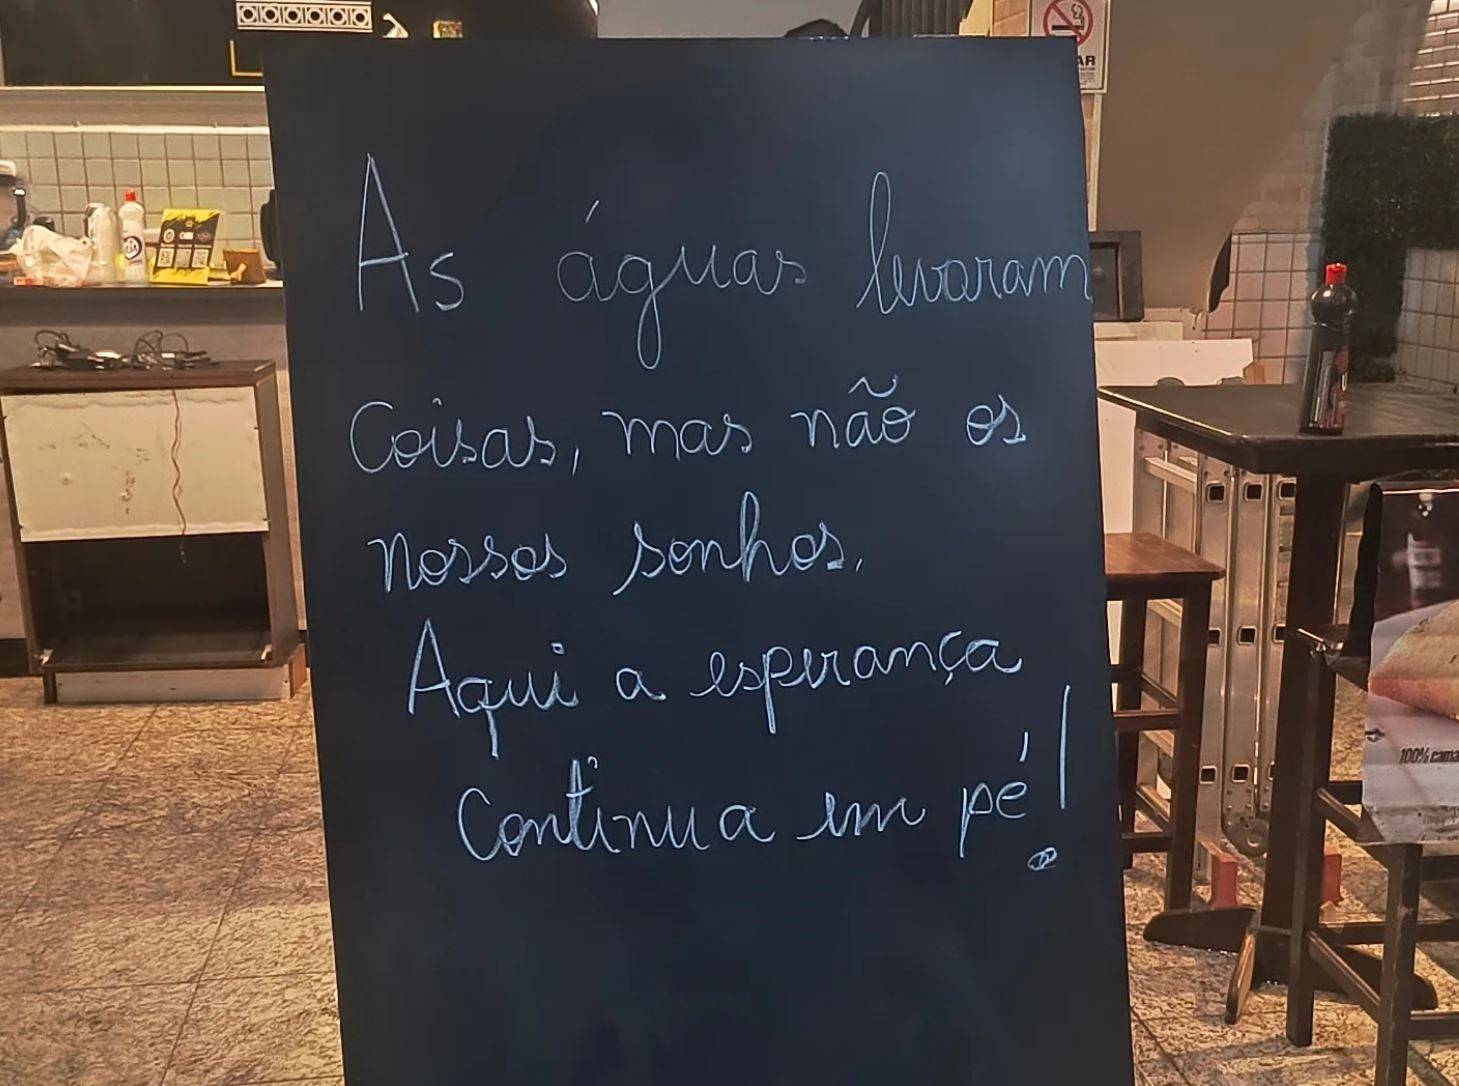 As águas levaram
Coisas, mas não os
nossos sonhos.
Aqui a esperança
Continua em pé!
AR
100% cama